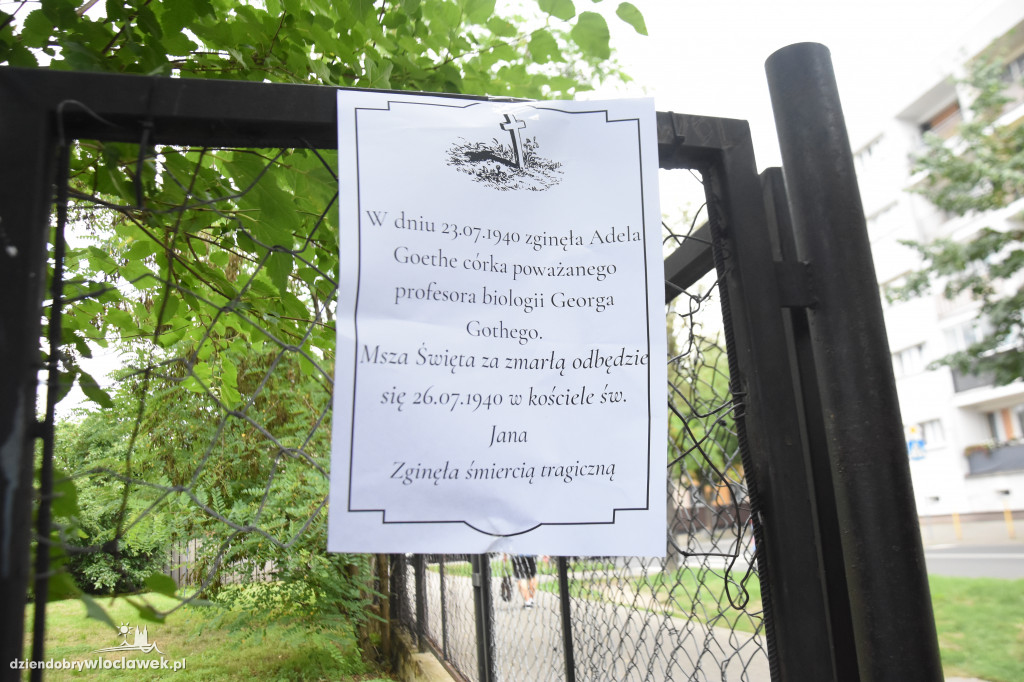 W dniu 23.07.1940 zginęła Adela
Goethe córka poważanego
profesora biologii Georga
Gothego.
Msza Święta za zmarłą odbędzie
się 26.07.1940 w kościele św.
Jana
Zginęła śmiercią tragiczną
dziendobrywloclawek.pl